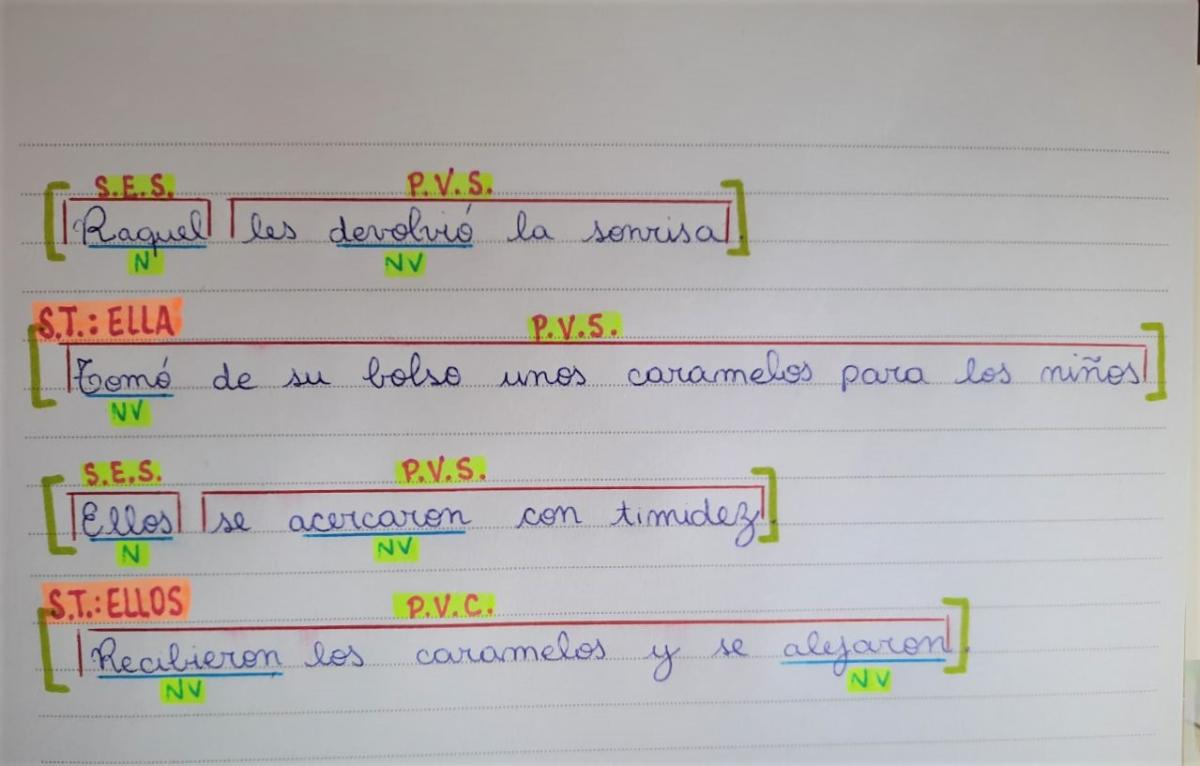 S.E.S. P.V.S.
[Raquel les devolvió la sonrisa].
N NV
S.T.: ELLA P.V.S.
[Tomó de su bolso unos caramelos para los niños]
NV
S.E.S. P.V.S.
[Ellos se acercaron con timidez].
N NV
S.T.: ELLOS P.V.C.
[Recibieron los caramelos y se alejaron].
NV NV